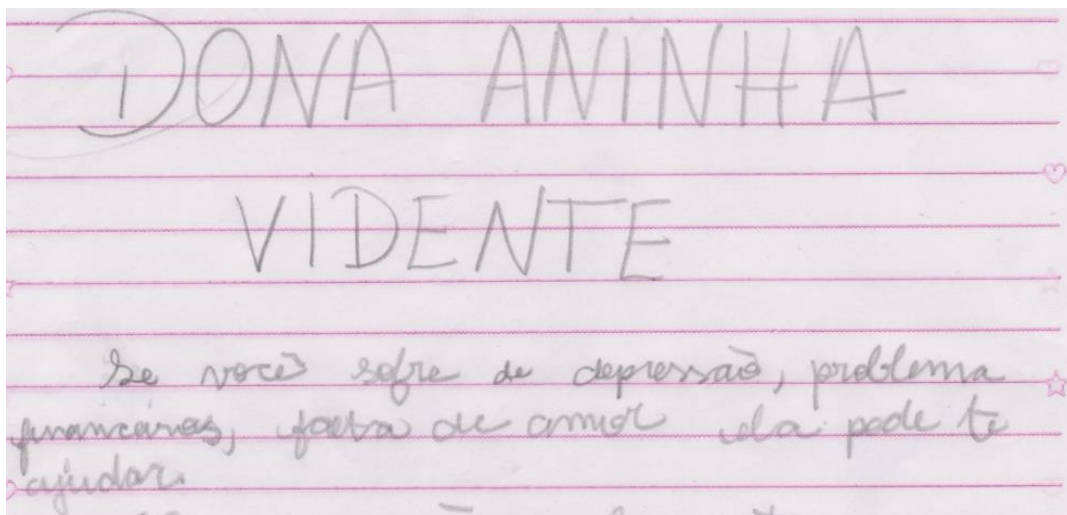 DONA ANINHA
VIDENTE
Se você sofre de depressão, problema
financeiros, falta de amor ela pode te
ajudar.